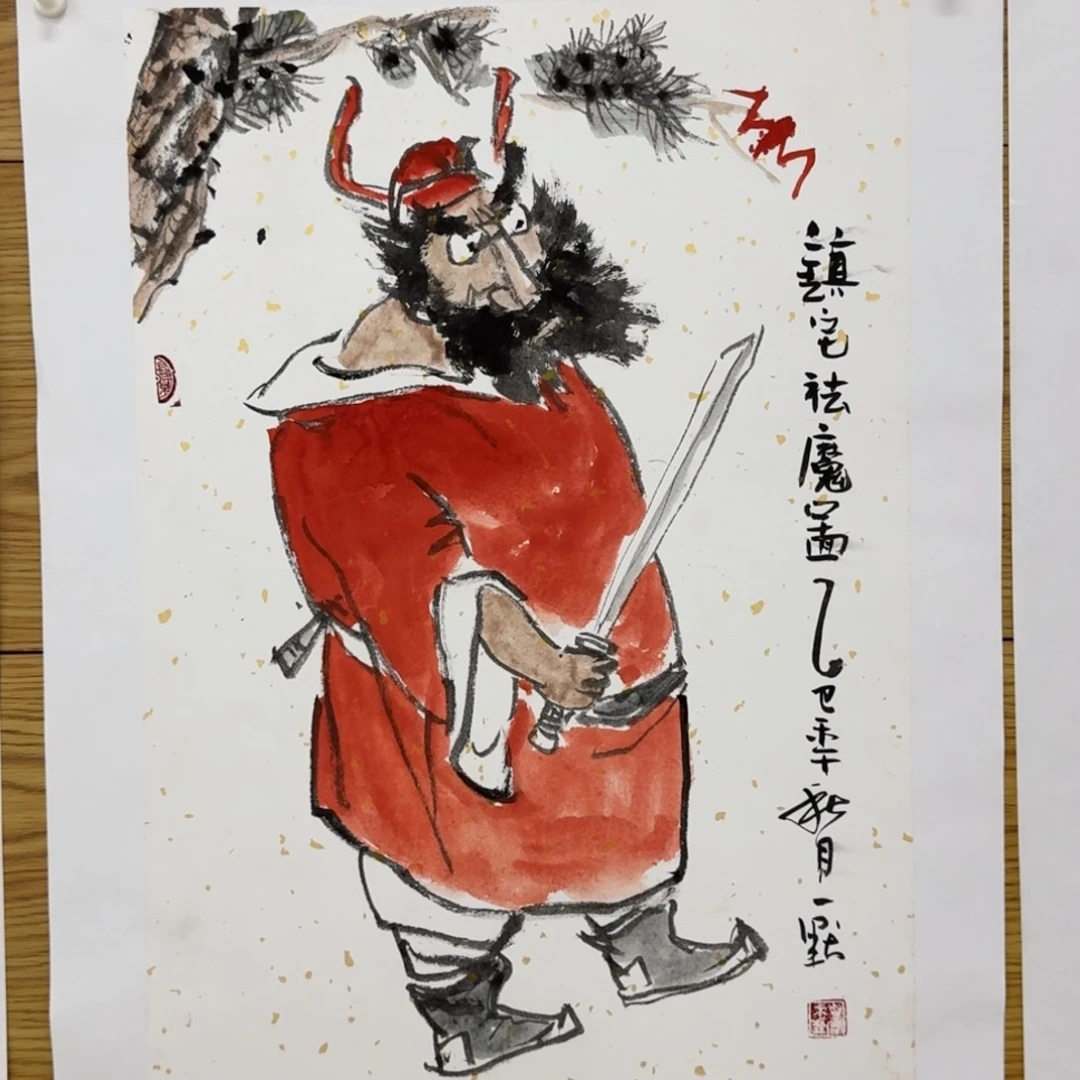 鎮宅祛魔圖乙巳年秋月一默